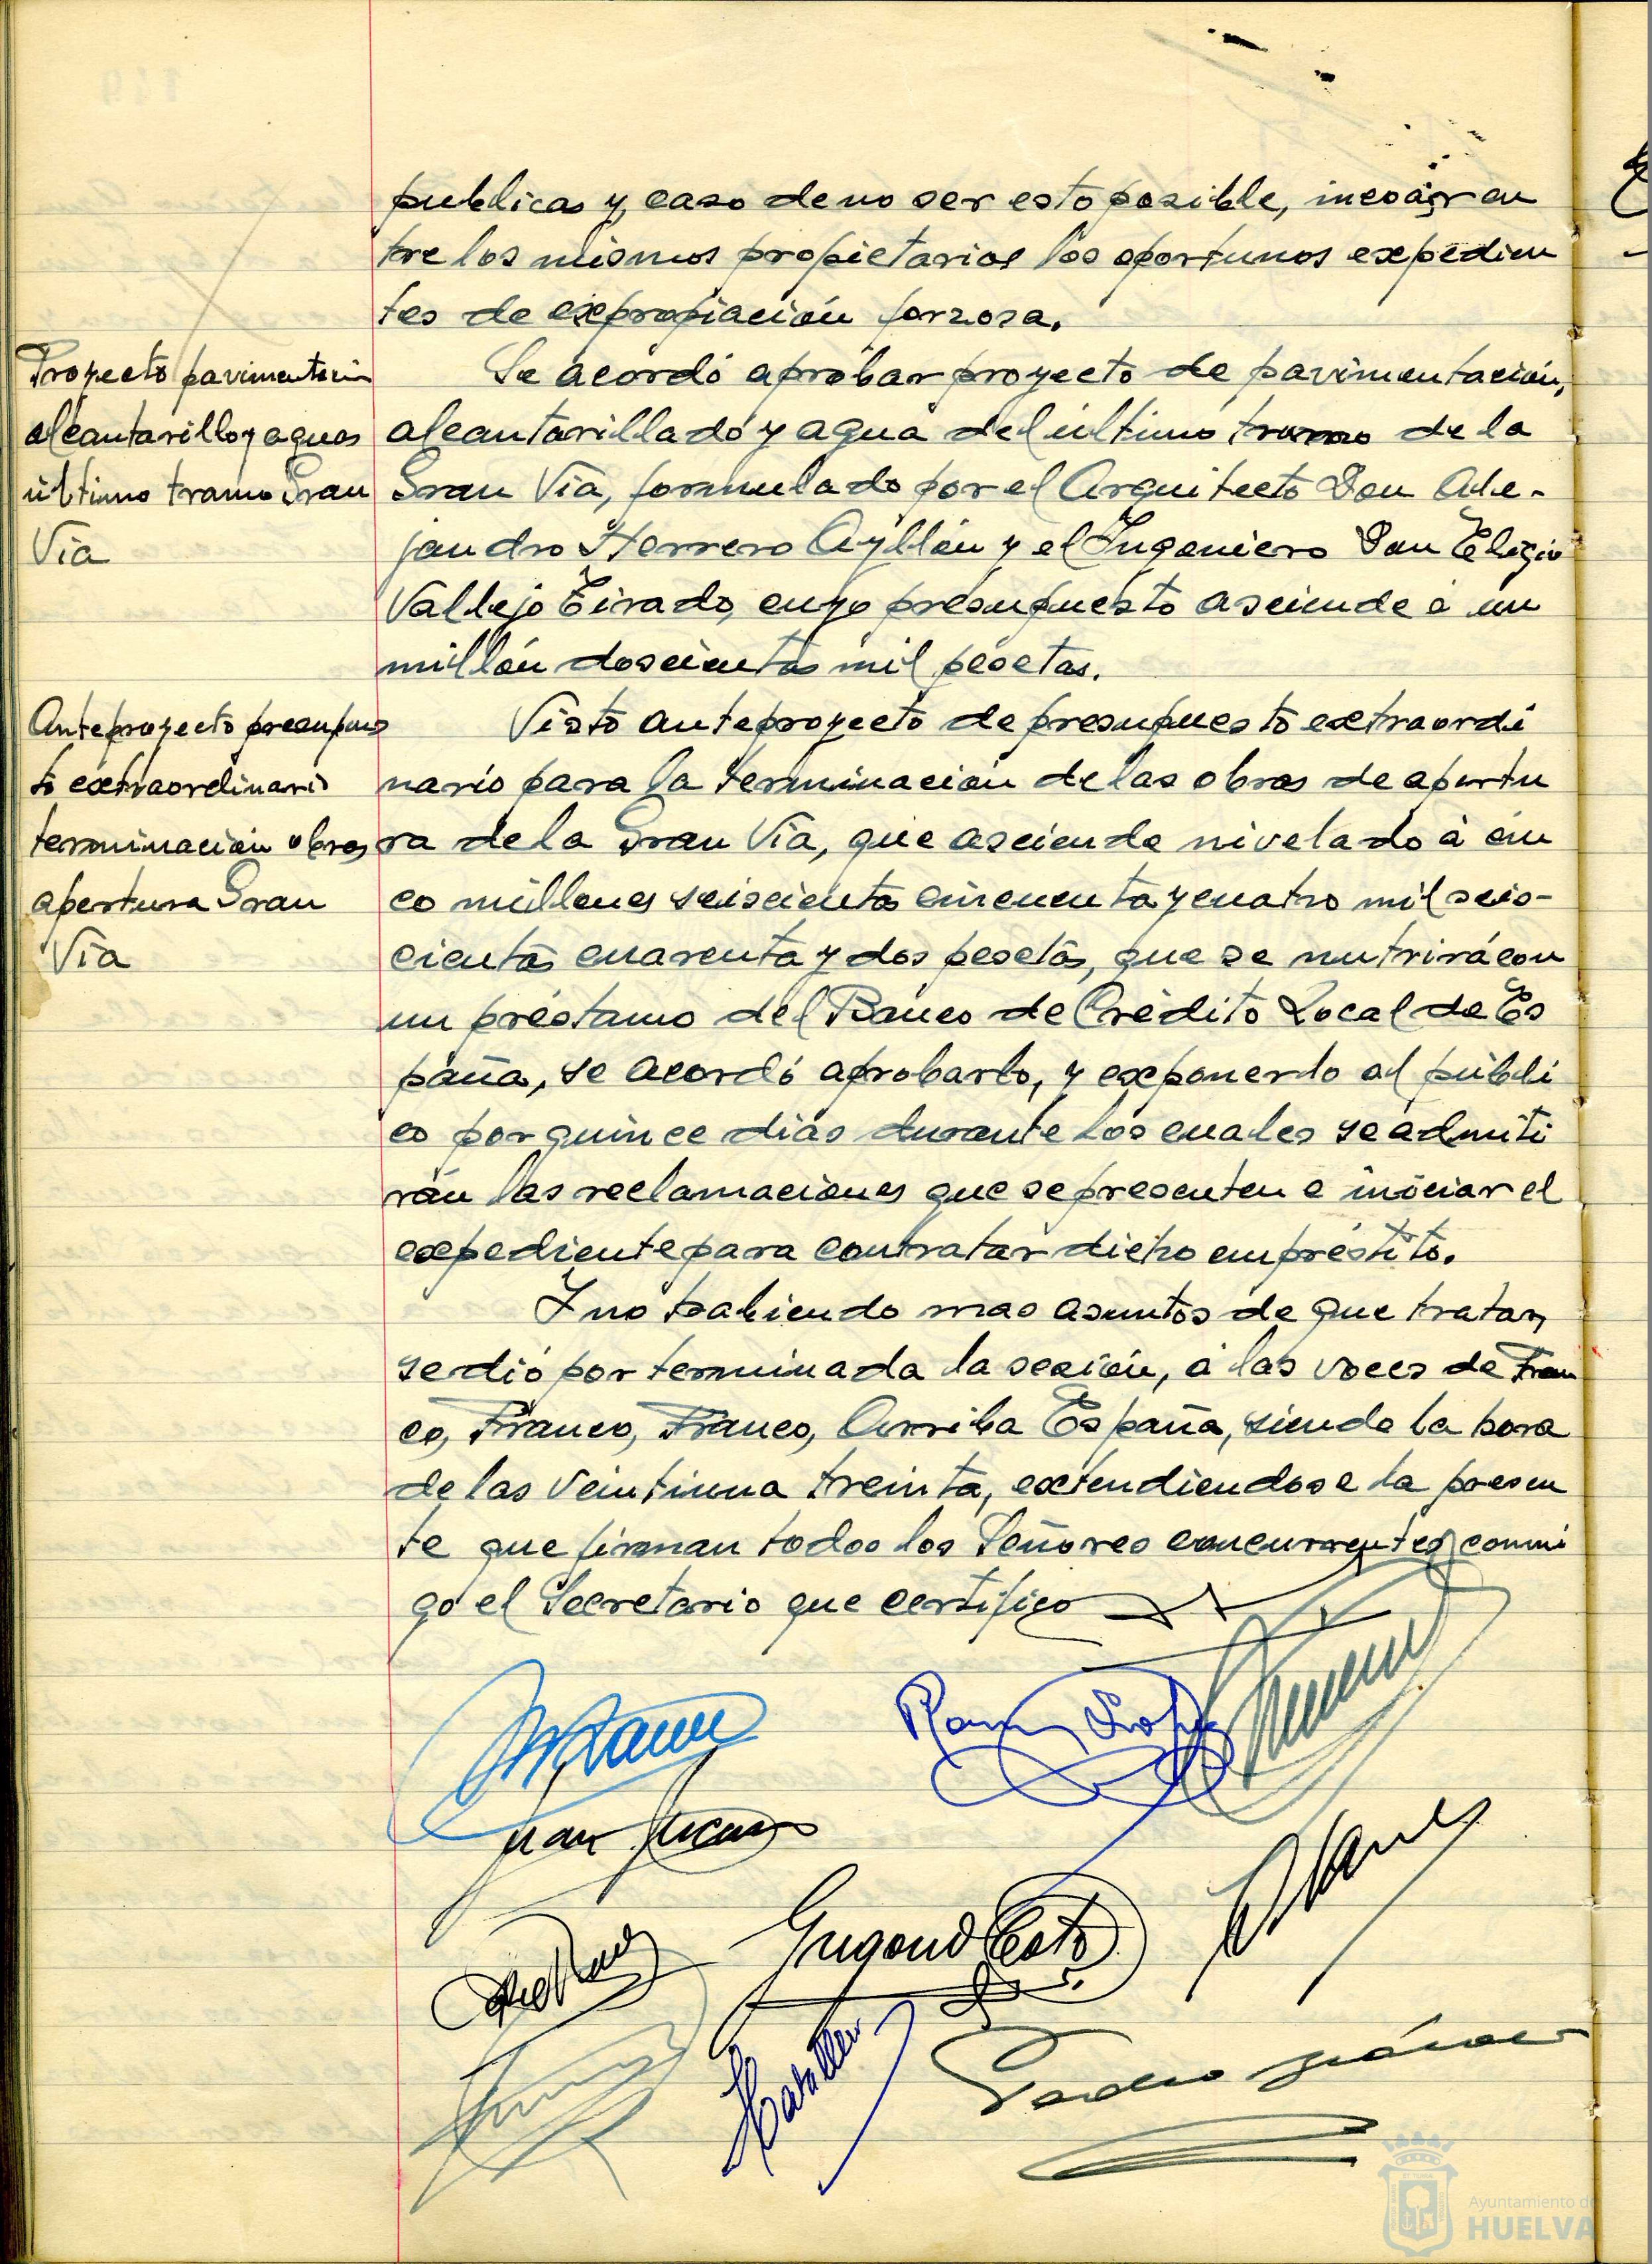 publicas y, caso de no ser esto posible, incoar en
tre los mismos propietarios los oportunos expedien
tes de expropiación forzosa.
Proyecto pavimentación
alcantarillo y aguas
último tramo Gran
Vía
Se acordó aprobar proyecto de pavimentación,
alcantarillado y agua del último tramo de la
Gran Vía, formulado por el Arquitecto Don Ale-
jandro Herrero Ayllón y el Ingeniero Don Eligio
Vallejo Tirado, cuyo presupuesto asciende a un
millón doscientas mil pesetas.
Anteproyecto presupues
to extraordinario
terminación obras
apertura Gran
Vía
Visto anteproyecto de presupuesto extraordi
nario para la terminación de las obras de apertu
ra de la Gran Vía, que asciende nivelado a cin
co millones seiscientas cincuenta y cuatro mil seis-
cientas cuarenta y dos pesetas, que se nutrirá con
un préstamo del Banco de Crédito Local de Es
paña, se acordó aprobarlo, y exponerlo al públi
co por quince días durante los cuales se admiti
rán las reclamaciones que se presenten e iniciar el
expediente para contratar dicho empréstito.
Y no habiendo mas asuntos de que tratar,
se dió por terminada la sesión, a las voces de Fran
co, Franco, Franco, Arriba España, siendo la hora
de las veintiuna treinta, extendiendose la presen
te que firman todos los Señores concurrentes, conmi
go el Secretario que certifico
Ayuntamiento de
HUELVA